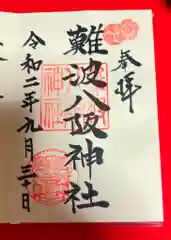 奉拝
難波八阪神社
令和二年九月三十日